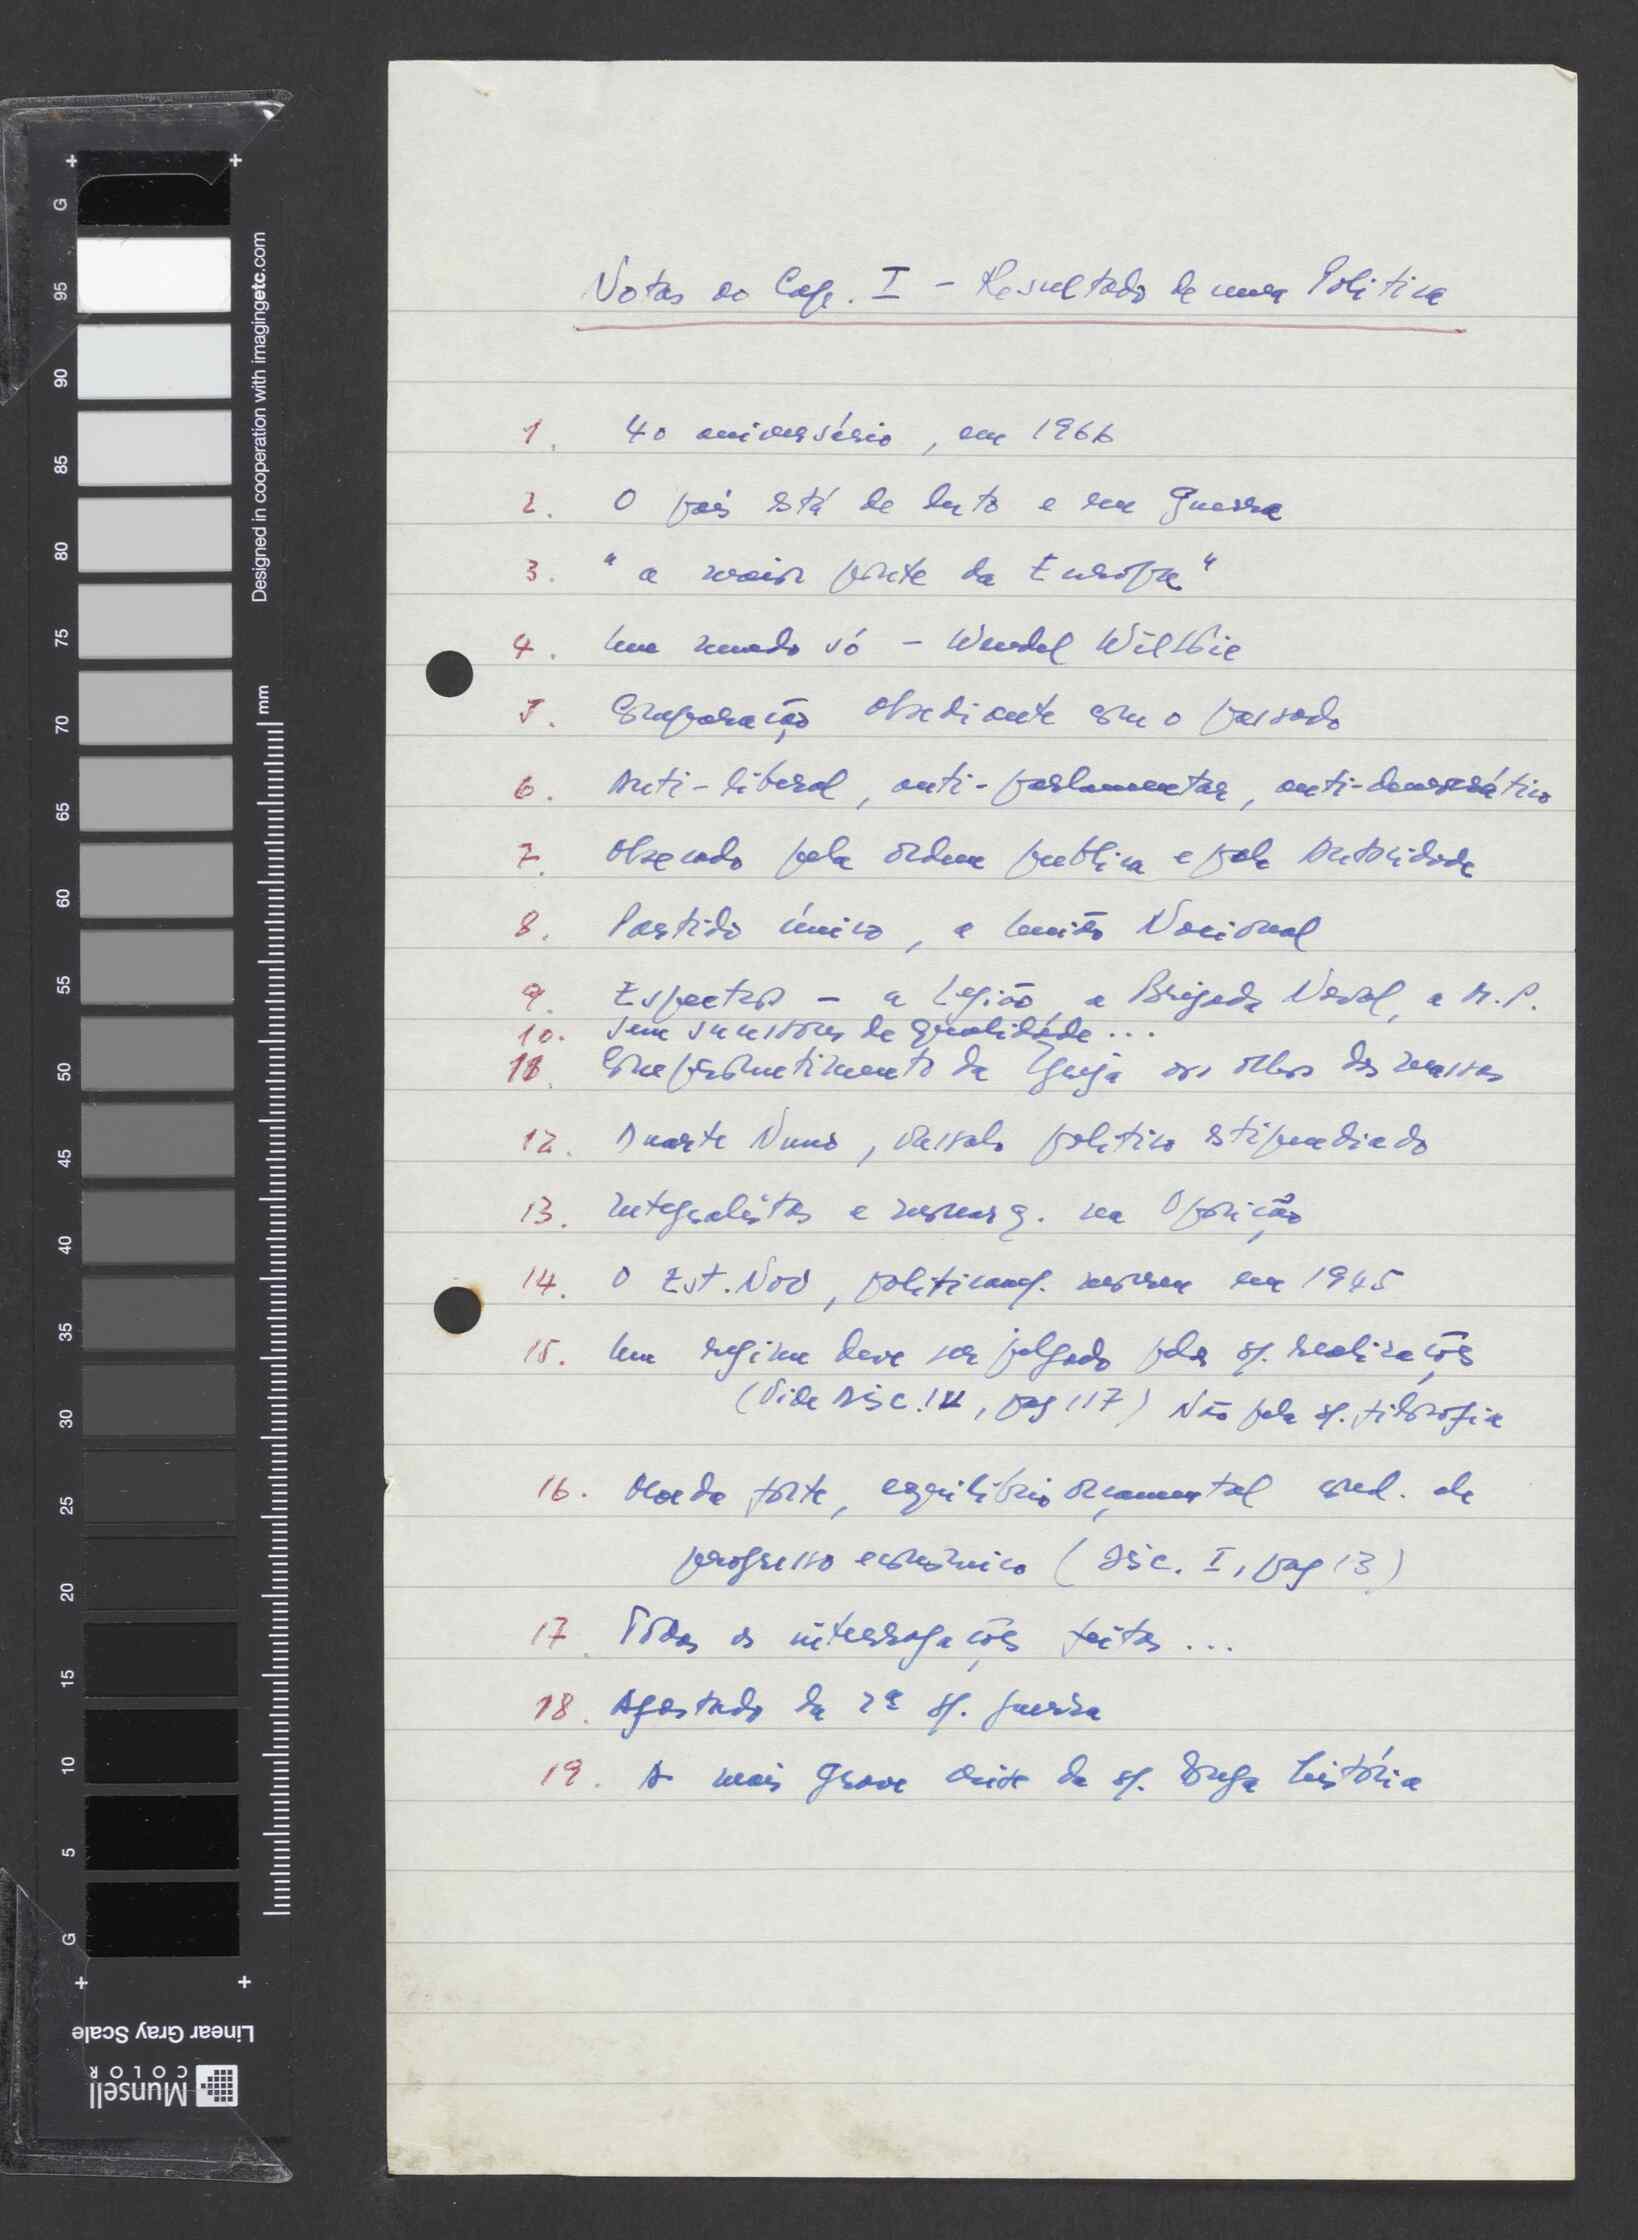 Notas ao Cap. I - Resultado de uma Politica
1. 40 aniversário, em 1966
2. O país está de luto e em guerra
3. "a maior ponte da Europa"
4. Um mundo só - Wendel Wilkie
5. Comparação obsediante com o passado
6. Anti-liberal, anti-parlamentar, anti-democrático
7. Obsecado pela ordem publica e pela Autoridade
8. Partido único, a União Nacional
9. Espectros - a Legião, a Brigada Naval, a M.P.
10. Sem sucessores de qualidade...
11. Comprometimento da Igreja aos olhos das massas
12. Duarte Nuno, vassalo politico estipendiado
13. Integralistas e monarq. na Oposição
14. O Est. Novo, politicam. morreu em 1945
15. Um regime deve ser julgado pelas s/. realizações
(Vide Disc. IV, pag 117) Não pela s/. filosofia
16. Moeda forte, equilíbrio orçamental cond. de
progresso económico (Disc. I, pag 13)
17. Tôdas as interrogações feitas...
18. Afastado da 2ª g/. guerra
19. A mais grave crise da s/. longa história
Designed in cooperation with imagingetc.com
mm
G 95 90 85 80 75 70 65 60 55 50 45 40 35 30 25 20 15 10 5 G
Linear Gray Scale
Munsell
COLOR